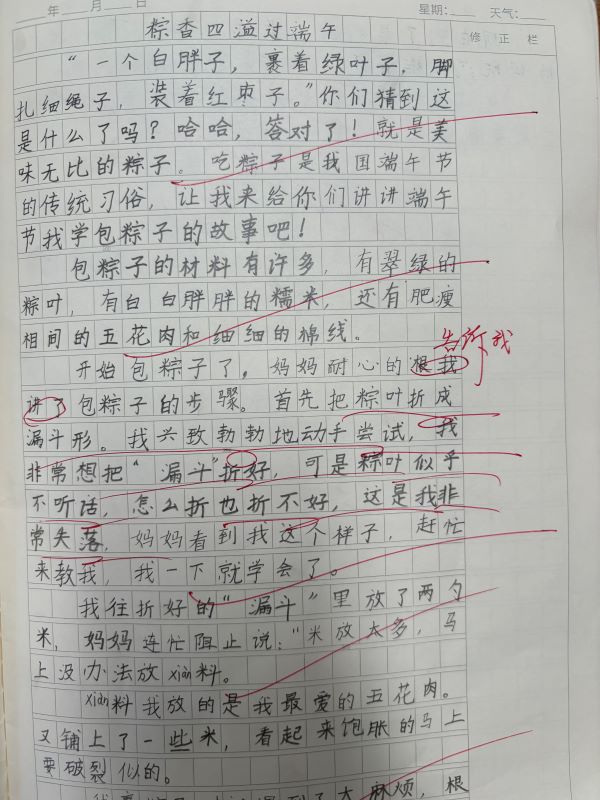 年 月 日 星期: 天气:
粽香四溢过端午 修正栏
“一个白胖子，裹着绿叶子，脚
扎细绳子，装着红枣子。”你们猜到这
是什么了吗？哈哈，答对了！就是美
味无比的粽子。吃粽子是我国端午节
的传统习俗，让我来给你们讲讲端午
节我学包粽子的故事吧！
包粽子的材料有许多，有翠绿的
粽叶，有白白胖胖的糯米，还有肥瘦
相间的五花肉和细细的棉线。
告诉我
开始包粽子了，妈妈耐心的跟我
讲了包粽子的步骤。首先把粽叶折成
漏斗形。我兴致勃勃地动手尝试，我
非常想把“漏斗”折好，可是粽叶似乎
不听话，怎么折也折不好，这是我非
常失落，妈妈看到我这个样子，赶忙
来教我，我一下就学会了。
我往折好的“漏斗”里放了两勺
米，妈妈连忙阻止说：“米放太多，马
上没办法放xiàn料。
xiàn料我放的是我最爱的五花肉。
又铺上了一些米，看起来饱胀的马上
要破裂似的。
大麻烦，根